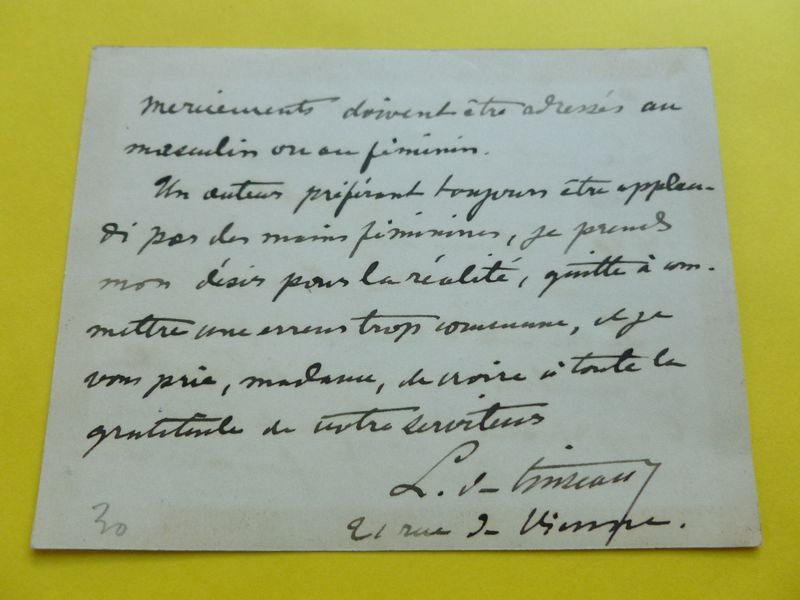 merciements doivent être adressés au
masculin ou au féminin.
Un auteur préférant toujours être applau-
di par des mains féminines, je prends
mon désir pour la réalité, quitte à com-
mettre une erreur trop commune, et je
vous prie, madame, de croire à toute la
gratitude de votre serviteur
L. de Tinseau
21 rue de Vienne.
30